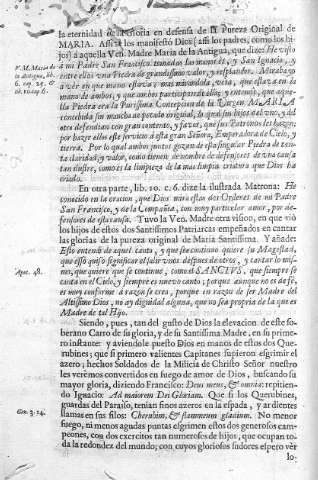 la eternidad de la gloria en defensa de la Pureza Original de
MARIA. Assi lo manifestò Dios (assi los padres, como los hi-
jos) à aquella Ven. Madre Maria de la Antigua, que dize: He visto
à mi Padre San Francisco tomadas las manos, y San Ignacio, y
entre ellos vna Piedra de grandissimo valor, y resplandor. Mirabalo
à vèr en que mano estava, y mas
mano de ambos, y que ambos participavan de ellos; y entendì, que aque-
lla Piedra era la Purissima Concepcion de la Virgen MARIA
concebida sin mancha de pecado original, la qual sus hijos del vno, y del
otro defendian con gran contento, y favor, que sus Patronos les hazen,
por hazer ellos este servicio à esta gran Señora, Emperadora de Cielo, y
tierra. Por lo qual ambos gozan de esta singular Piedra de tan-
ta claridad y valor, como tienen de nombre de defensores de vna causa
tan ilustre, como es la limpieza de la mas limpia criatura que Dios ha
criado.
En otra parte, lib. 10. c. 6. dize la ilustrada Matrona: He
conocido en la oracion, que Dios mira estas dos Ordenes de mi Padre
San Francisco, y de la Compañia, con muy particular amor, por de-
fensores de esta causa. Tuvo la Ven. Madre otra vision, en que viò
los hijos de estos dos Santissimos Patriarcas empeñados en cantar
las glorias de la pureza original de Maria Santissima. Y añade:
Esto entendì de aquel canto, y que de continuo quiere su Magestad,
que esso quiso significar el salir vnos despues de otros, y cantar lo mis-
mo, que quiere que se continue, como el SANCTVS, que siempre se
canta en el Cielo, y siempre es nuevo canto; porque aunque no es de fè,
es muy conforme à razon se crea, porque en razon de ser Madre del
Altissimo Dios, no ay dignidad alguna, que no sea propria de la que es
Madre de tal Hijo.
Siendo, pues, tan del gusto de Dios la elevacion de este so-
berano Carro de su gloria, y de su Santissima Madre, en su primer
instante: y aviendole puesto Dios en manos de estos dos Que-
rubines; que si primero valientes Capitanes supieron esgrimir el
azero; hechos Soldados de la Milicia de Christo Señor nuestro
les verèmos convertidos en fuego de amor de Dios, buscando su
mayor gloria, diziendo Francisco: Deus meus, & omnia: repitien-
do Ignacio: Ad maiorem Dei Gloriam. Que si los Querubines,
guardas del Paraiso, tenian finos azeros en la espada, y ardientes
llamas en sus filos: Cherubim, & flammeum gladium. No menor
fuego, ni menos agudas puntas esgrimen estos dos generosos cam-
peones, con dos exercitos tan numerosos de hijos, que ocupan to-
da la redondez del mundo; con cuyos gloriosos sudores espero vèr
lo
V. M. Maria de
la Antigua, lib.
Apoc. 48.
Gen. 3. 24.